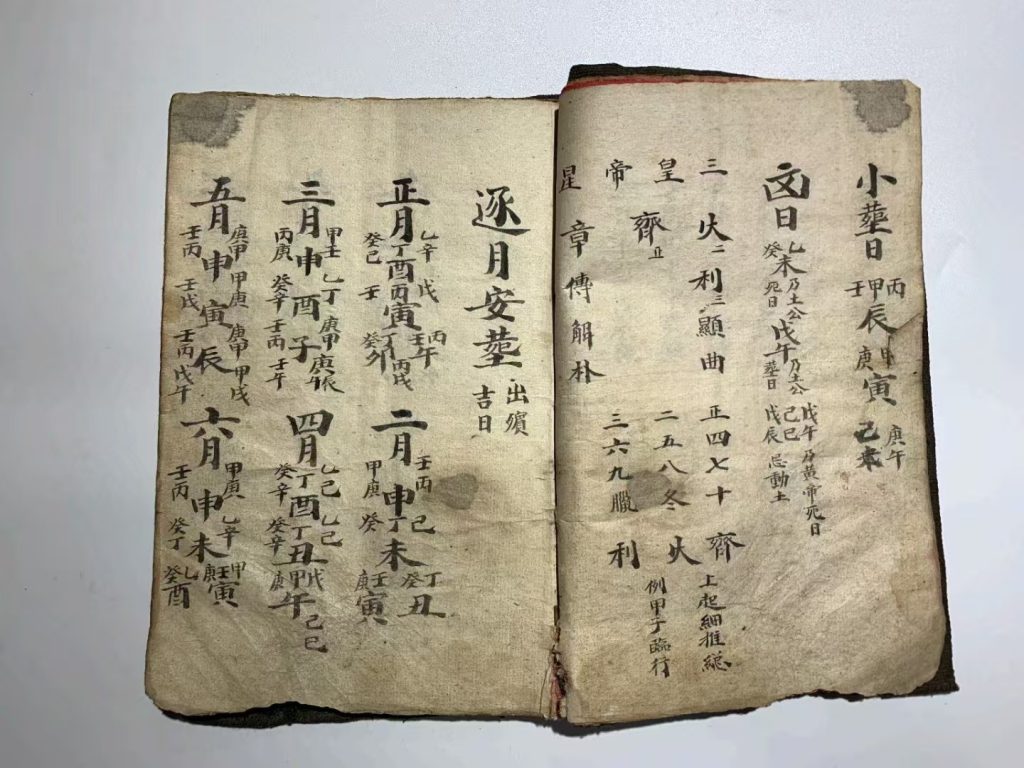 小塟日 丙甲壬辰 甲庚寅 庚午 己未
㐫日 乙癸未乃土公死日 戊午乃土公塟日 戊午乃黄帝死日 己巳戊辰忌動土
三火二利三顯曲 正四七十齊 上起細推縂
皇齊 二五八冬火 例甲子臨行
帝 三六九臘利
星章傳解朴
逐月安塟 出殯吉日
正月 乙辛丁癸己酉 戊丙壬寅 丁癸卯 丙壬午 丙戌
二月 壬丙甲庚申 己丁癸未 壬庚寅 丁癸丑
三月 甲壬丙庚申 乙丁癸辛酉 庚甲壬丙子 庚辰 壬午
四月 乙己丁癸辛酉 乙己丁癸辛丑 戊甲庚午 己巳
五月 庚甲壬丙申 甲庚壬戊寅 庚甲壬丙辰 甲戌 戊午
六月 甲庚壬丙申 乙辛癸丁未 甲壬庚寅 乙癸酉